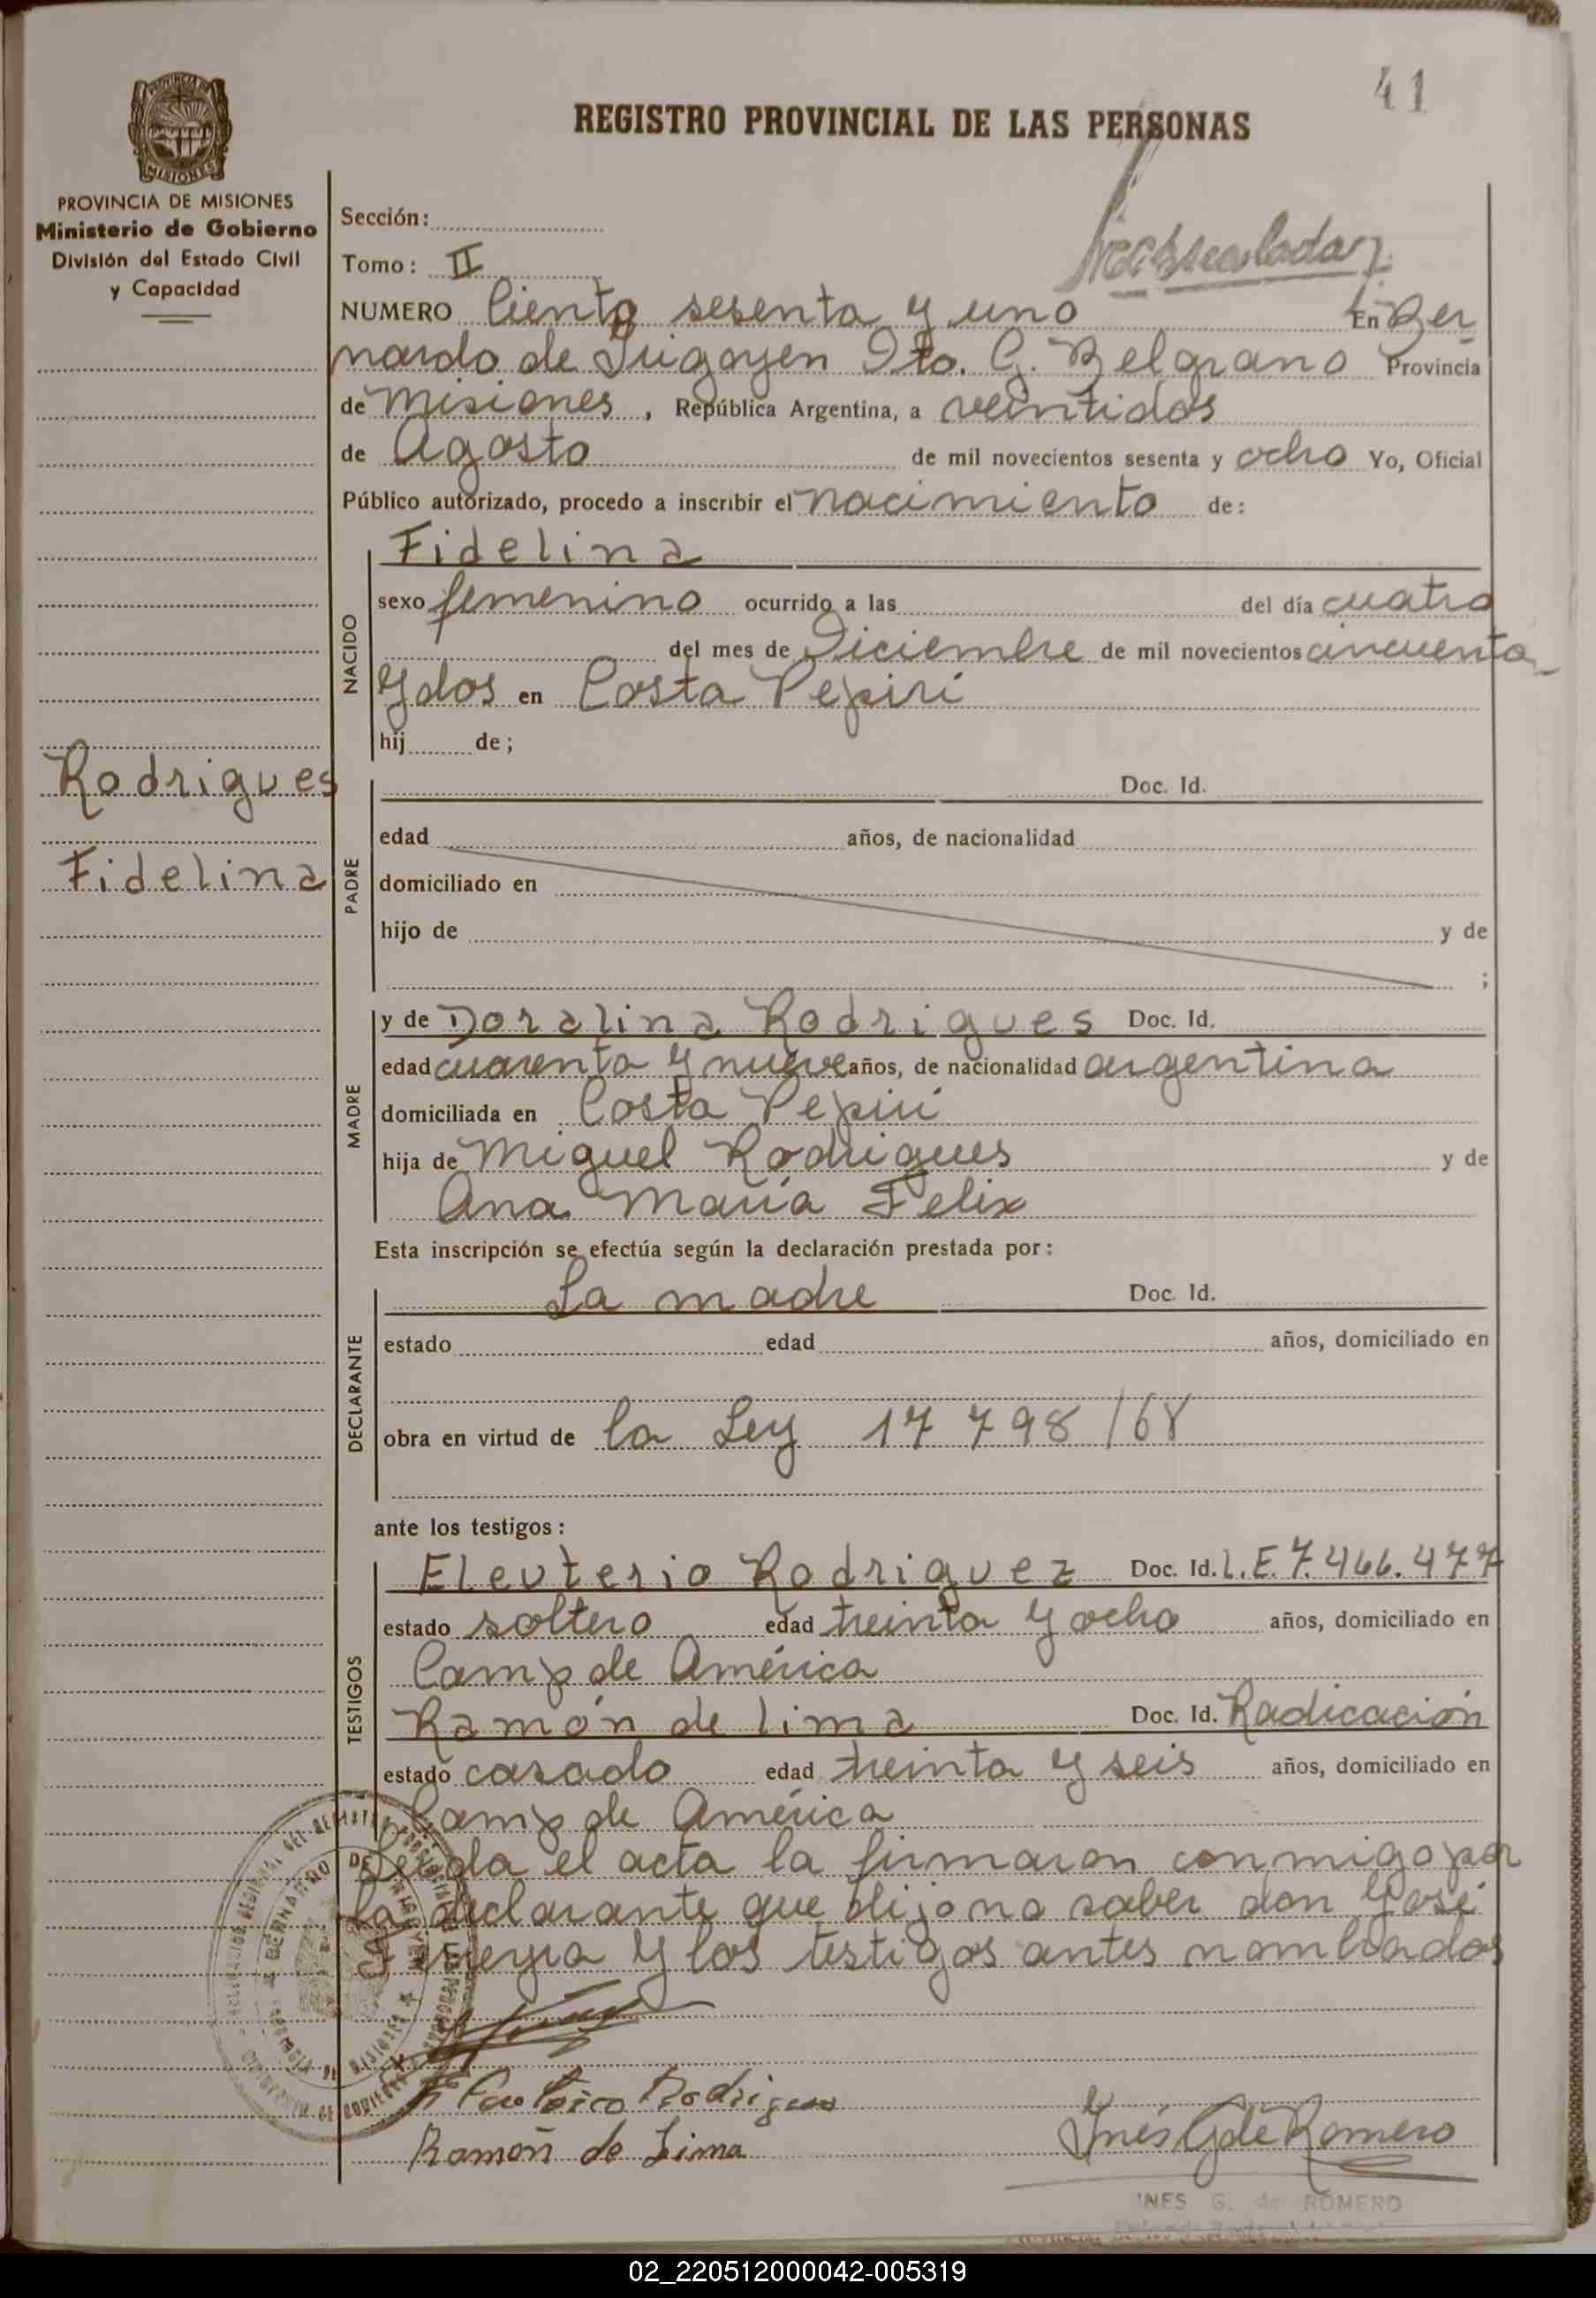 41
REGISTRO PROVINCIAL DE LAS PERSONAS
PROVINCIA DE
MISIONES
PROVINCIA DE MISIONES
Ministerio de Gobierno
División del Estado Civil
y Capacidad
Sección:
Tomo: II
NUMERO Ciento sesenta y uno En Ber
nardo de Irigoyen Dto. G. Belgrano Provincia
de Misiones, República Argentina, a veintidos
de Agosto de mil novecientos sesenta y ocho Yo, Oficial
Público autorizado, procedo a inscribir el nacimiento de:
Fidelina
NACIDO
sexo femenino ocurrido a las del día cuatro
del mes de Diciembre de mil novecientos cincuenta
y dos en Costa Pepirí
hij de;
Rodrigues
Fidelina
PADRE
Doc. Id.
edad años, de nacionalidad
domiciliado en
hijo de y de
;
MADRE
y de Doralina Rodrigues Doc. Id.
edad cuarenta y nueve años, de nacionalidad argentina
domiciliada en Costa Pepirí
hija de Miguel Rodrigues y de
Ana María Felix
Esta inscripción se efectúa según la declaración prestada por:
DECLARANTE
La madre Doc. Id.
estado edad años, domiciliado en
obra en virtud de la Ley 17 798/68
ante los testigos:
TESTIGOS
Eleuterio Rodriguez Doc. Id. L.E. 7.466.477
estado soltero edad treinta y ocho años, domiciliado en
Camp de América
Ramón de Lima Doc. Id. Radicación
estado casado edad treinta y seis años, domiciliado en
Camp de América
Leida el acta la firmaron conmigo por
la declarante que dijo no saber don José
y los testigos antes nombrados
Rodrigues
Ramon de Lima
Inés G de Romero
INES G. de ROMERO
02_220512000042-005319